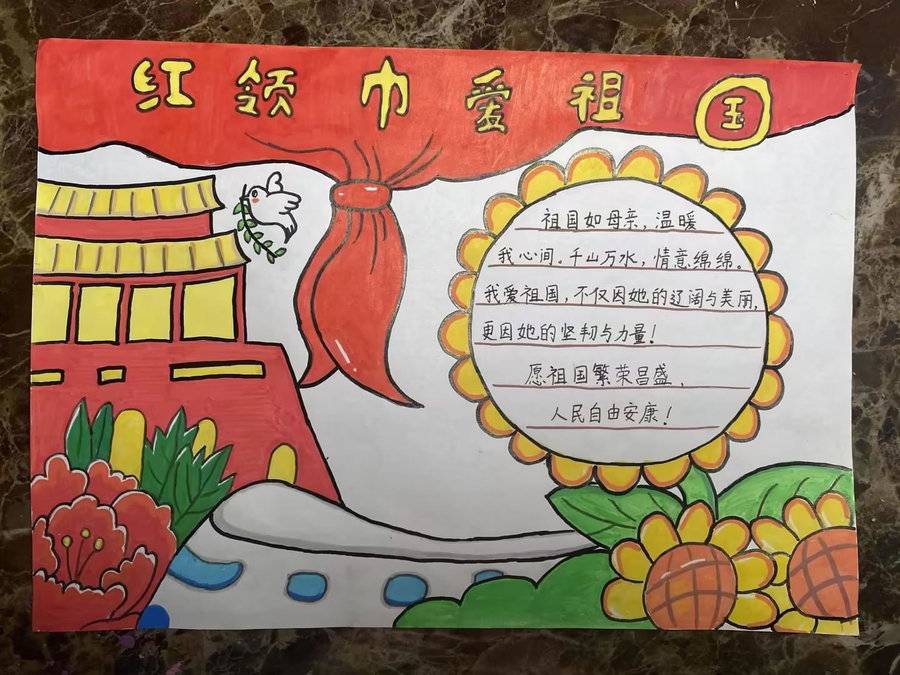 红领巾爱祖国
祖国如母亲，温暖
我心间。千山万水，情意绵绵。
我爱祖国，不仅因她的辽阔与美丽，
更因她的坚韧与力量！
愿祖国繁荣昌盛，
人民自由安康！